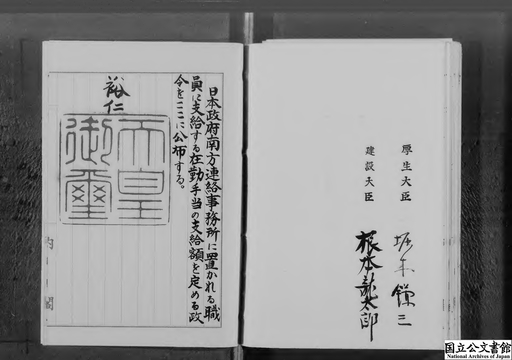 厚生大臣 堀木鎌三
建設大臣 根本龍太郎
日本政府南方連絡事務所に置かれる職
員に支給する在勤手当の支給額を定める政
令をここに公布する。
裕仁
天皇
御璽
内閣
国立公文書館
National Archives of Japan